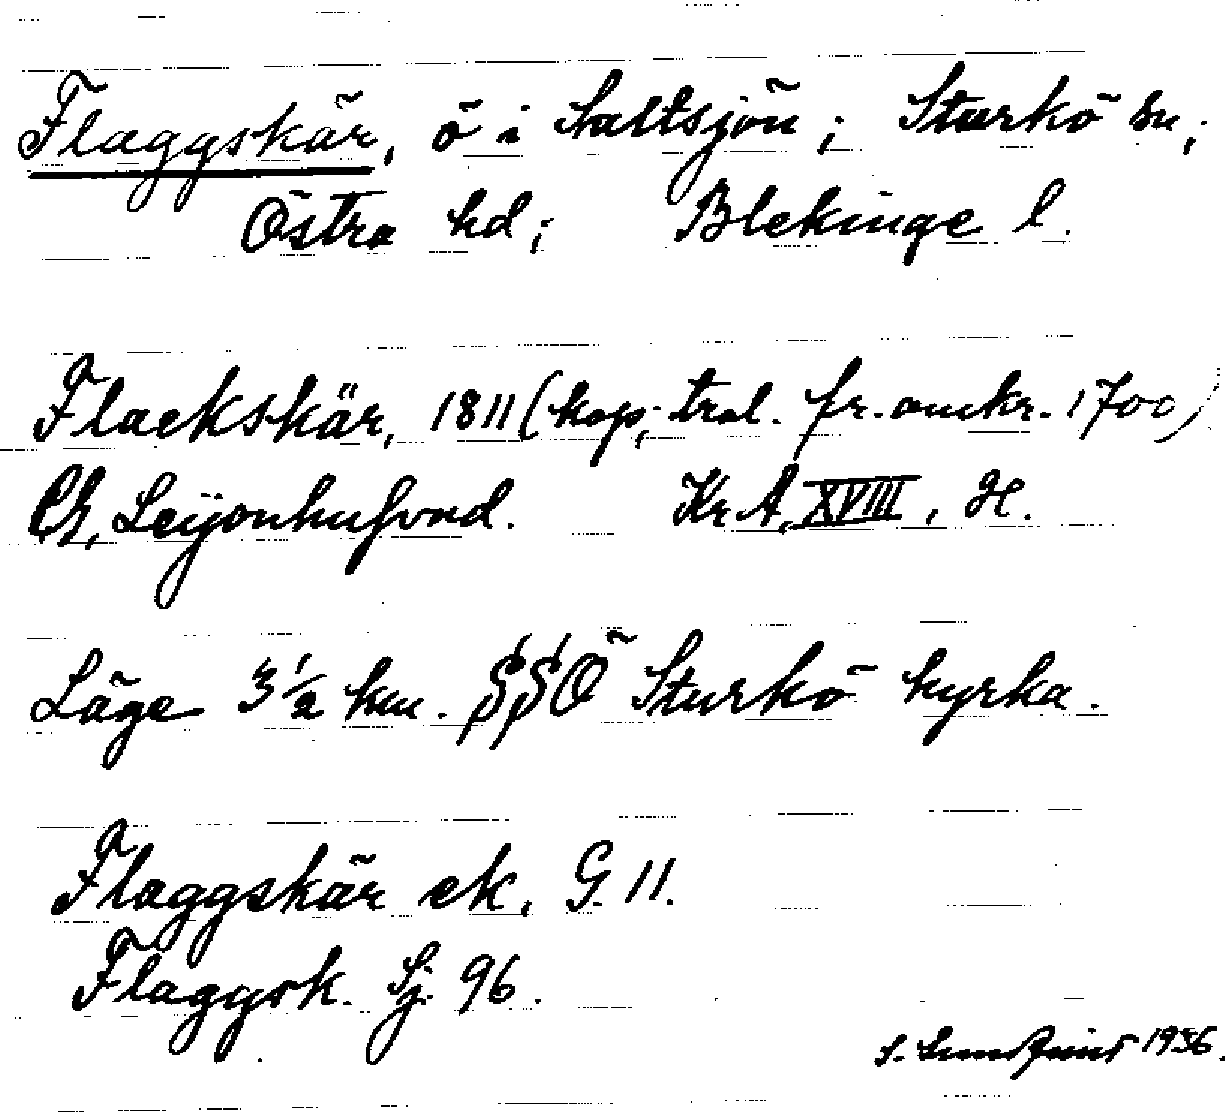 Flaggskär, ö i Saltsjön; Sturkö sn;
Östra hd; Blekinge l.
Flackskär, 1811 (kop. tral. fr. omkr. 1700)
Ch. Leijonhufvud. KrA, XVIII, H.
Läge 3 1/2 km. SSÖ Sturkö kyrka.
Flaggskär ek. G. 11.
Flaggsk. Sj. 96.
S. 1936.